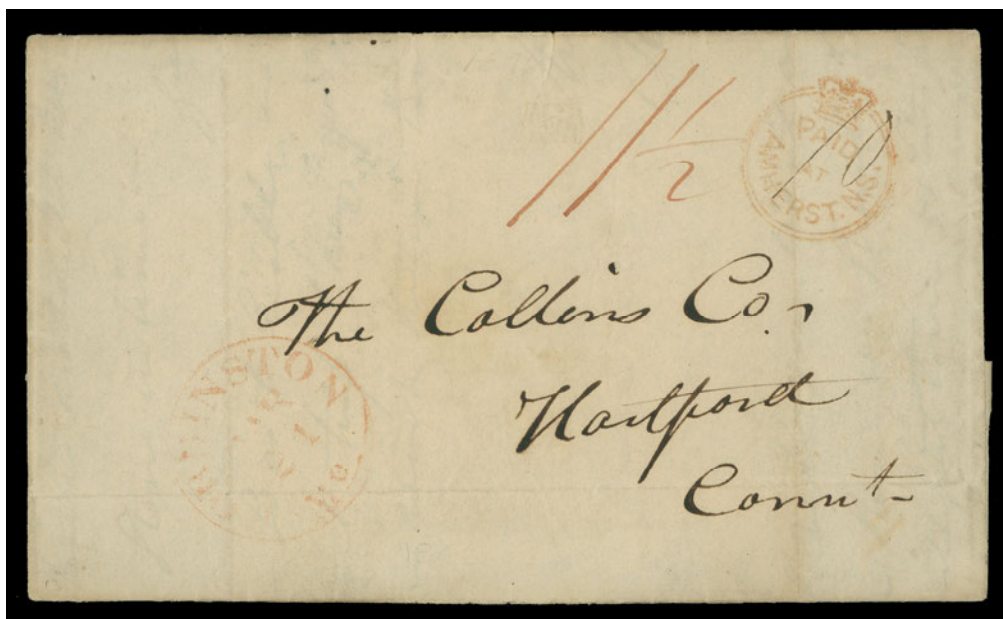 11 1/2
PAID
AMHERST. N.S.
10
The Collins Co.
Hartford
Connt
INSTON Me